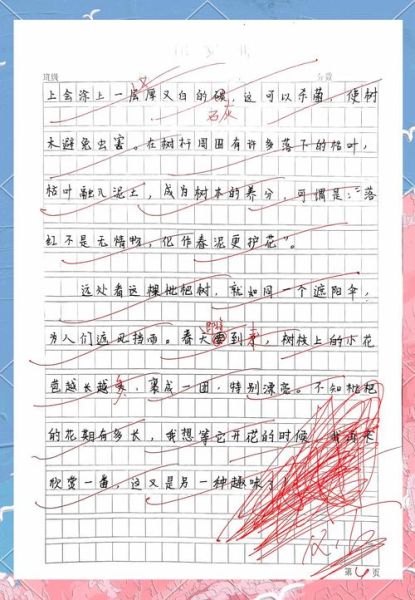 班级
分数
上会涂上一层厚又白的碳,这可以杀菌,使树
又
石灰
木避免虫害。在树杆周围有许多落下的枯叶,
枯叶融入泥土,成为树木的养分,可谓是:“落
红不是无情物,化作春泥更护花”。
远处看这棵枇杷树,就如同一个遮阳伞,
为人们遮风挡雨。春天到来,树枝上的小花
苞越长越多,裹成一团,特别漂亮。不知枇杷
的花期有多长,我想等它开花的时候,我再来
欣赏一番,这又是另一种趣味
第4页